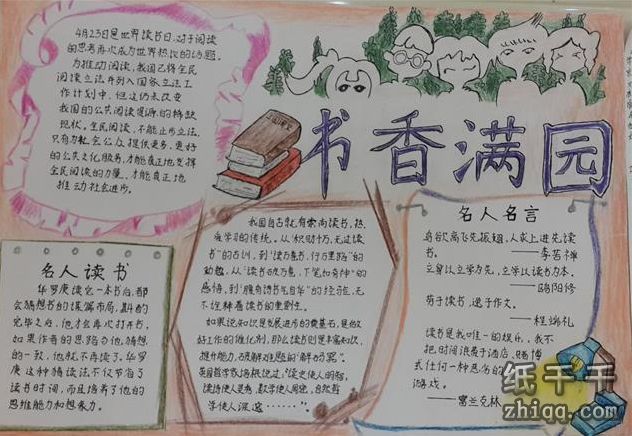 4月23日是世界读书日,对于阅读
的思考再次成为世界热议的话题。
为推动阅读,我国已将全民
阅读立法并列入国家立法工
作计划中,但这仍未改变
我国的公共阅读资源的稀缺
现状。全民阅读,不能止步立法,
只有为社会公众提供更多、更好
的公共文化服务,才能真正地支撑
全民阅读的力量,才能真正地
推动社会进步。
书香满园
名人读书
华罗庚读完一本书后,都
会猜想书的谋篇布局,斟酌
完毕之后,他才会再次打开书,
如果作者的思路与他猜想
的一致,他就不再读了。华罗
庚这种猜读法不仅节省了
读书时间,而且培养了他的
思维能力和想象力。
我国自古就有崇尚读书,热
爱学习的传统。从"积财千万,无过读
书"的古训,到"读万卷书,行万里路"的
动趣,从"读书破万卷,下笔如有神"的
感悟,到"腹有诗书气自华"的经验,无
不诠释着读书的重要性。
如果说知识是发展进步的奠基石,是做
好工作的催化剂,那么读书则是丰富知识,
提升能力,破解难题的"解码器"。
英国哲学家培根说过,"读史使人明智,
读诗使人灵秀,数学使人周密,自然哲
学使人深邃……"。
名人名言
鸟欲高飞先振翅,人求上进先读
书。
——李苦禅
立身以立学为先,立学以读书为本。
——欧阳修
苟于读书,遑于作文。
——程端礼
读书是我唯一的娱乐,我不
把时间浪费于酒店、赌博
或任何一种恶劣的
游戏。
——富兰克林
纸千千
zhiqq.com